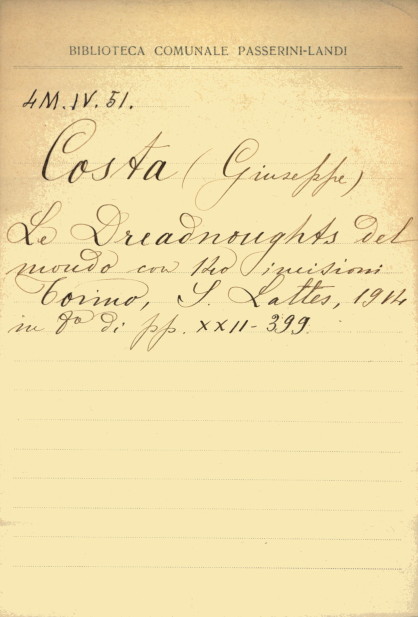 BIBLIOTECA COMUNALE PASSERINI-LANDI
4M.IV.51.
Costa (Giuseppe)
Le Dreadnoughts del
mondo con 140 incisioni
Torino, S. Lattes, 1914
in 8º di pp. XXII-399.